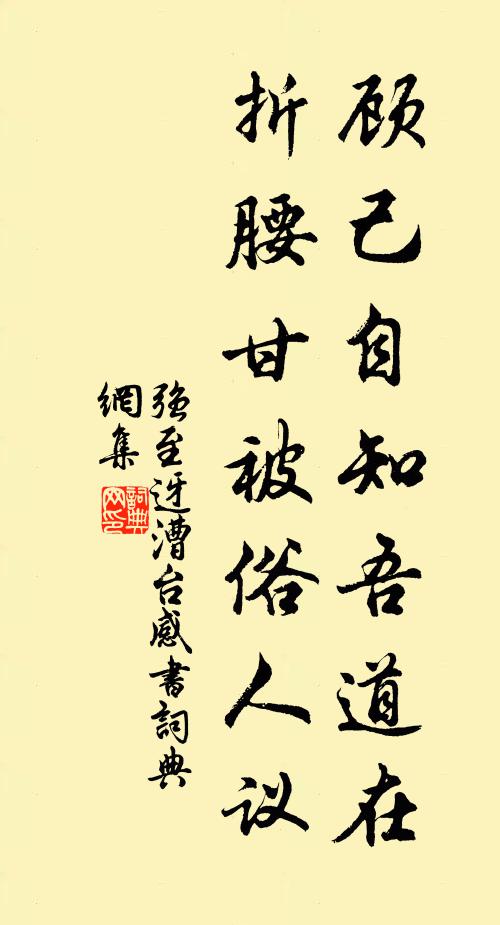 顾己自知吾道在
折腰甘被俗人议
强至迓漕台感書詞典
網集
詞典
网印